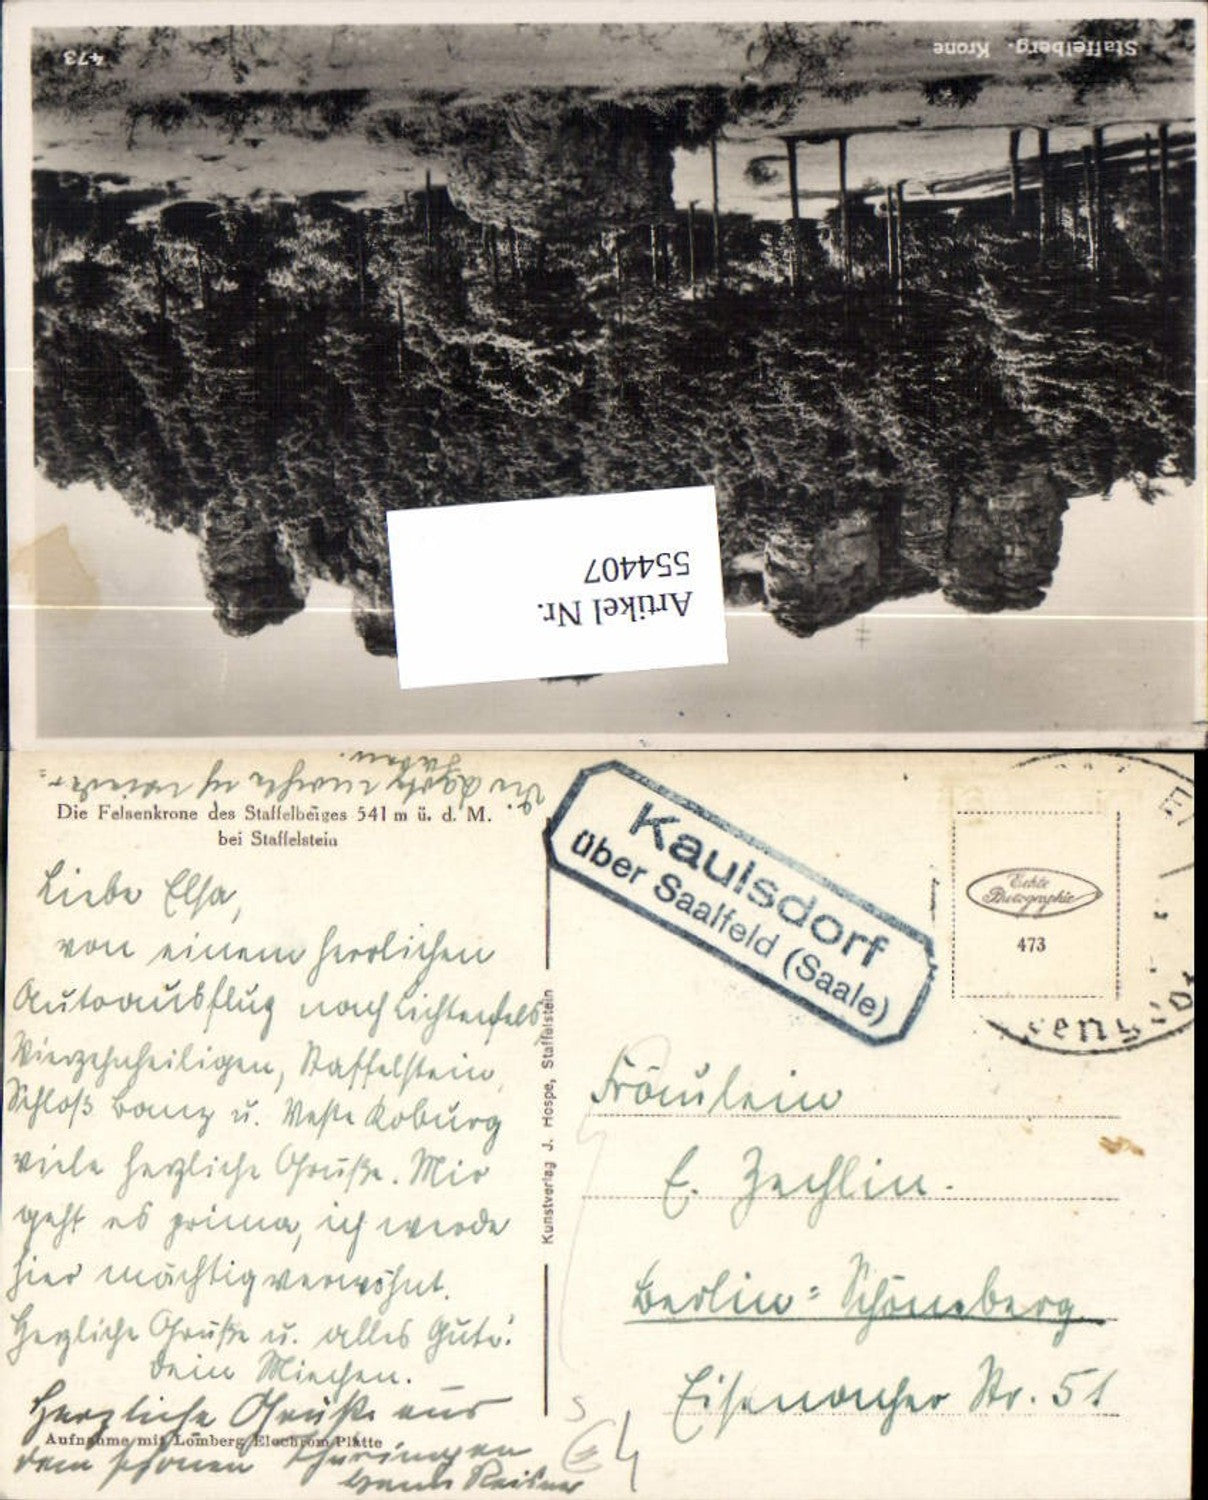 Staffelberg. Krone
473
Artikel Nr.
554407
Die Felsenkrone des Staffelberges 541 m ü. d. M.
bei Staffelstein
Liebe Elsa,
von einem herrlichen
Autoausflug nach Lichtenfels,
Vierzehnheiligen, Staffelstein,
Schloß Banz u. Veste Koburg
viele herzliche Grüße. Mir
geht es prima, ich werde
hier mächtig verwöhnt.
Herzliche Grüße u. alles Gute!
Dein Miechen.
Herzliche Grüße aus
dem schönen Thüringen
Aufnahme mit Lomberg Elochrom-Platte
Kunstverlag J. Hospe, Staffelstein
Kaulsdorf
über Saalfeld (Saale)
Echte
Photographie
473
Fräulein
E. Zechlin.
Berlin-Schöneberg
Eisenacher Str. 51